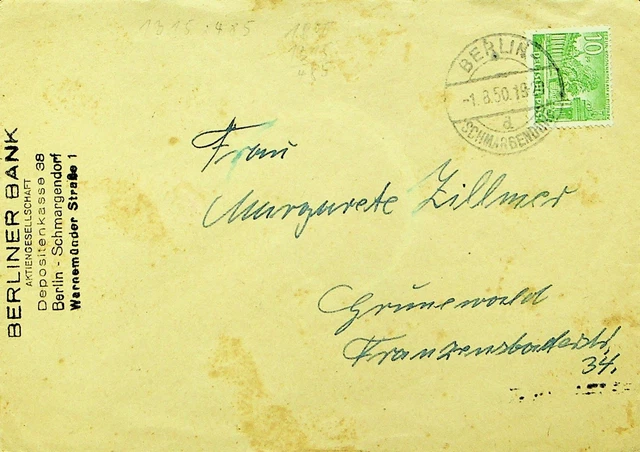 1315.485
BERLINER BANK
AKTIENGESELLSCHAFT
Depositenkasse 38
Berlin - Schmargendorf
Warnemünder Straße 1
BERLIN
-1.8.50.18
d
SCHMARGENDORF
10
Frau
Margarete Zillmer
Grunewald
Franzensbaderstr.
34.